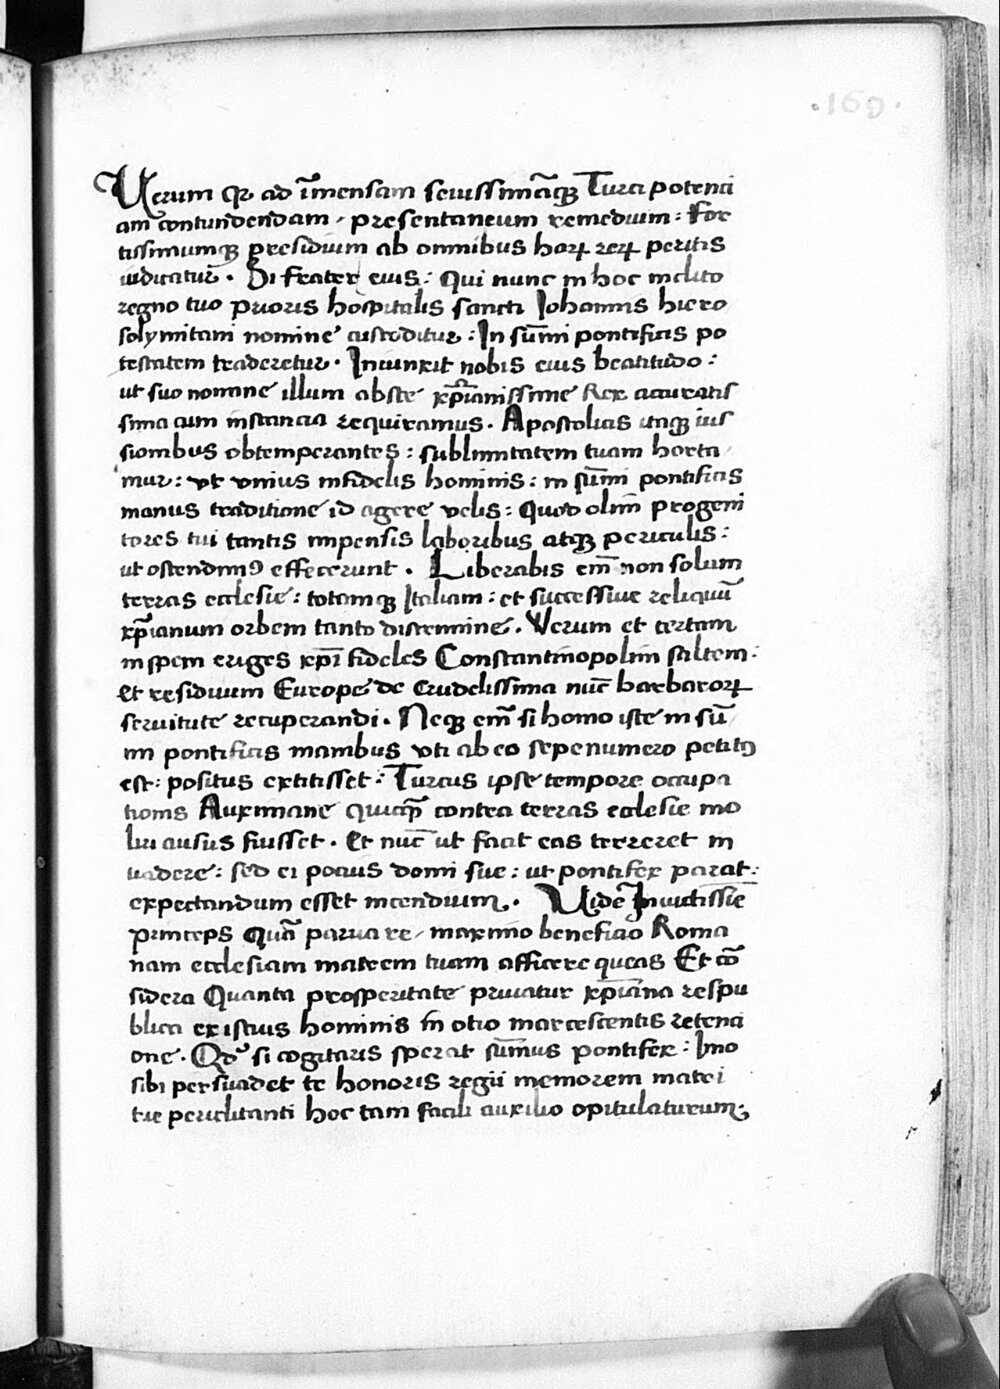 ·169·
Verum qꝛ ad īmensam seuissimāqꝫ Turci potenci
am contundendam / presentaneum remedium : For
tissimumqꝫ presidium ab omnibus haꝝ reꝝ peritis
iudicatur̄ . Si frater eius : Qui nunc in hoc inclito
regno tuo prioris hospitalis sancti Iohannis hiero
solymitani nomine custoditur : In sūmi pontificis po
testatem traderetur . Iniunxit nobis eius beatitudo :
ut suo nomine illum abste xp̄ianissime Rex accuratis
sima cum instancia requiramus . Apostolicis itaqꝫ ius
sionibus obtemperantes : sublimitatem tuam horta
mur : vt vnius infidelis hominis : in sūmi pontificis
manus traditione id agere velis : Quod olim̄ progeni
tores tui tantis impensis laboribus atqꝫ periculis :
ut ostendimꝰ effecerunt . Liberabis em̄ non solum
terras ecclesie : totamqꝫ Italiam : et successiue reliquū
xp̄ianum orbem tanto discrimine . Verum et certam
in spem eriges xp̄i fideles Constantinopolim saltem :
et residuum Europe de crudelissima nūc barbaroꝝ
seruitute recuperandi . Neqꝫ em̄ si homo iste in sū
mi pontificis manibus vti ab eo sepenumero petitꝰ
est : positus extitisset : Turcus ipse tempore occupa
tionis Auximane quicqꝫ̄ contra terras ecclesie mo
liri ausus fuisset . Et nūc ut facit eas terreret in
uadere : sed ei pocius domi sue : ut pontifex parat :
expectandum esset incendium . Vide Inuictissiē
princeps Quā parua re / maximo beneficio Roma
nam ecclesiam matrem tuam afficere queas Et cō
sidera Quanta prosperitate priuatur xp̄iana respu
blica ex istius hominis in otio marcescentis retenci
one . Qd̓ si cogitaris sperat sūmus pontifex : Imo
sibi persuadet te honoris regii memorem matri
tue periclitanti hoc tam facili auxilio opitulaturum .